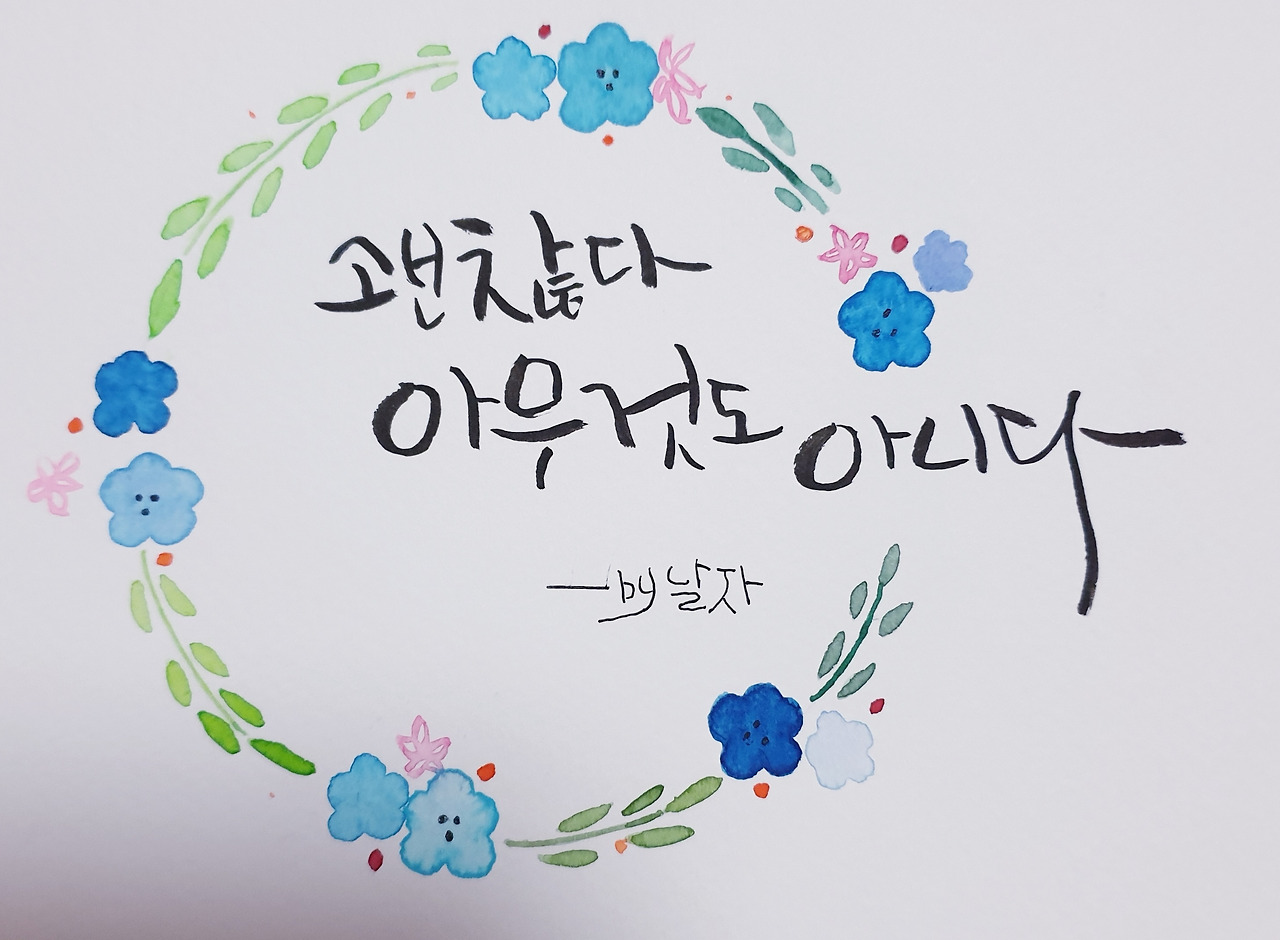 괜찮다
아무것도 아니다
— by 날자